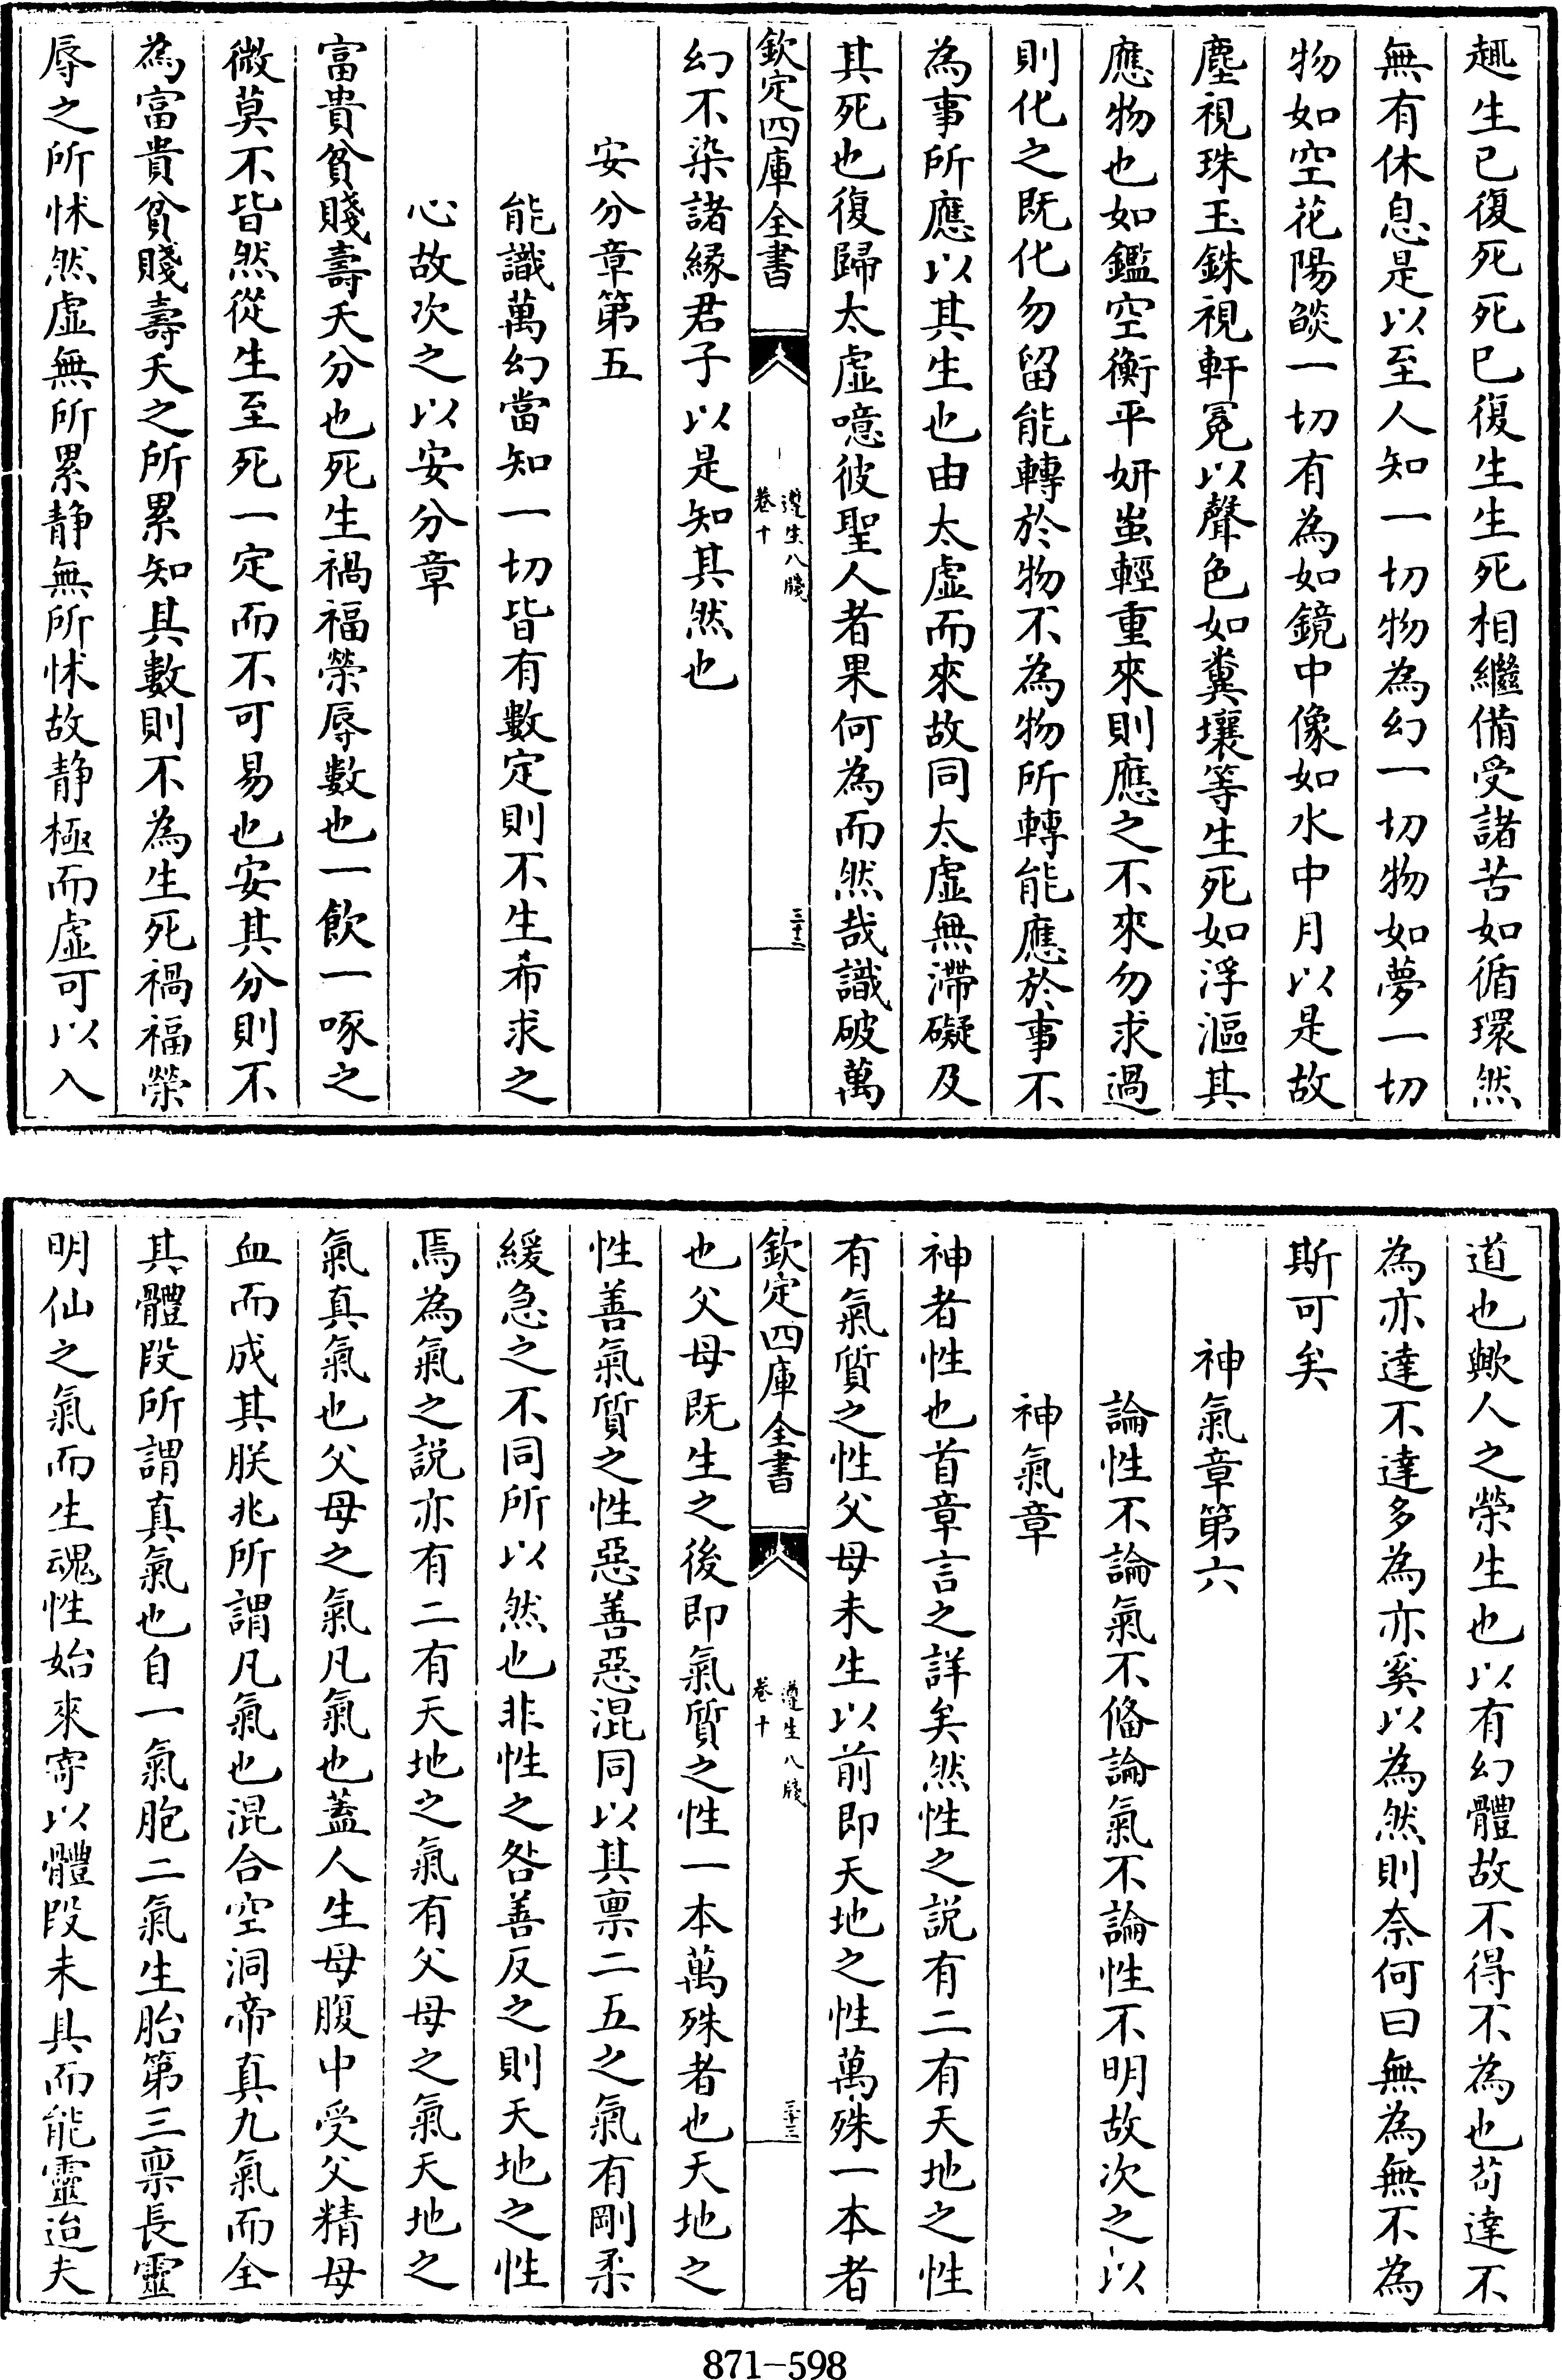 趣生已復死死已復生生死相繼備受諸苦如循環然
無有休息是以至人知一切物為幻一切物如夢一切
物如空花陽燄一切有為如鏡中像如水中月以是故
塵視珠玉銖視軒冕以聲色如糞壤等生死如浮漚其
應物也如鑑空衡平妍蚩輕重來則應之不來勿求過
則化之既化勿留能轉於物不為物所轉能應於事不
為事所應以其生也由太虛而來故同太虛無滯礙及
其死也復歸太虛噫彼聖人者果何為而然哉識破萬
欽定四庫全書
遵生八牋
卷十
三十二
幻不染諸緣君子以是知其然也
安分章第五
能識萬幻當知一切皆有數定則不生希求之
心故次之以安分章
富貴貧賤壽夭分也死生禍福榮辱數也一飲一啄之
微莫不皆然從生至死一定而不可易也安其分則不
為富貴貧賤壽夭之所累知其數則不為生死禍福榮
辱之所怵然虛無所累静無所怵故静極而虛可以入
道也歟人之榮生也以有幻體故不得不為也苟達不
為亦達不達多為亦奚以為然則奈何曰無為無不為
斯可矣
神氣章第六
論性不論氣不備論氣不論性不明故次之以
神氣章
神者性也首章言之詳矣然性之說有二有天地之性
有氣質之性父母未生以前即天地之性萬殊一本者
欽定四庫全書
遵生八牋
卷十
三十三
也父母既生之後即氣質之性一本萬殊者也天地之
性善氣質之性惡善惡混同以其禀二五之氣有剛柔
緩急之不同所以然也非性之咎善反之則天地之性
焉為氣之說亦有二有天地之氣有父母之氣天地之
氣真氣也父母之氣凡氣也蓋人生母腹中受父精母
血而成其朕兆所謂凡氣也混合空洞帝真九氣而全
其體段所謂真氣也自一氣胞二氣生胎第三禀長靈
明仙之氣而生魂性始來寄以體段未具而能靈迨夫
871-598